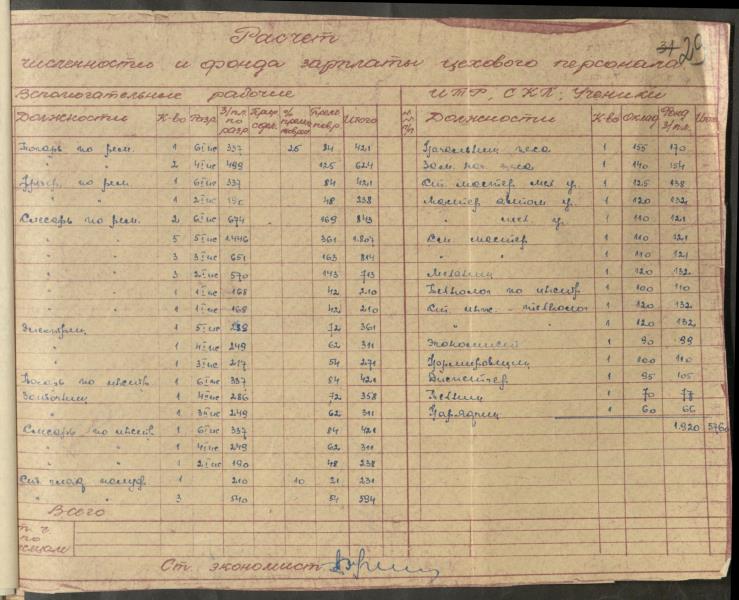 Расчет
31 29
численности и фонда зарплаты цехового персонала
Вспомогательные рабочие
Должности К-во Разр. З/пл. по разр. % премии Прем. повр. Итого
Токарь по рем. 1 6 337 25 84 421
" 2 4 499 125 624
по рем. 1 6 337 84 421
" " 1 2 190 48 238
Слесарь по рем. 2 6 674 169 843
" " 5 5 1.446 361 1.807
" " 3 3 651 163 814
" " 3 2 570 143 713
" " 1 1 168 42 210
" " 1 1 168 42 210
Электрик 1 5 289 72 361
" 1 4 249 62 311
" 1 3 217 54 271
Токарь по инстр. 1 6 337 84 421
Заточник 1 4 286 72 358
" 1 3 249 62 311
Слесарь по инстр. 1 6 337 84 421
" " 1 4 249 62 311
" " 1 2 190 48 238
Ст. клад. полуф. 1 210 10 21 231
" " 3 540 54 594
Всего
ИТР, СКП, Ученики
Должности К-во Оклад Фонд З/пл.
Начальник цеха 1 155 170
Зам. нач. цеха 1 140 154
Ст. мастер мех. у. 1 125 138
Мастер автом. у. 1 120 132
" мех. у. 1 110 121
См. мастер 1 110 121
" " 1 110 121
Механик 1 120 132
Технолог по инстр. 1 100 110
Ст. инж. - технолог 1 120 132
" " 1 120 132
Экономист 1 90 99
Нормировщик 1 100 110
Диспетчер 1 95 105
Техник 1 70 77
Нарядчик 1 60 66
1.920 5760
Ст. экономист